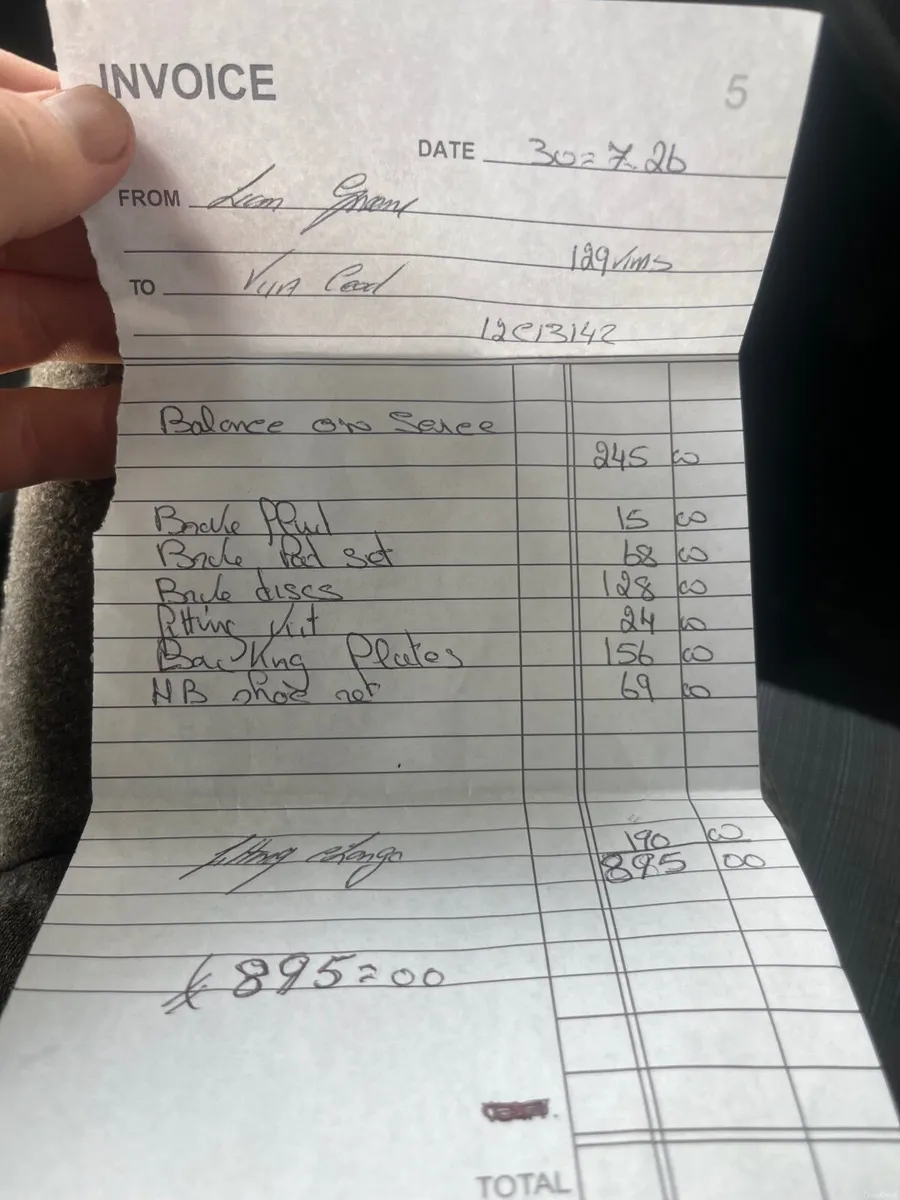 INVOICE 5
DATE 30=7.26
FROM
129 Vms
TO
12C13142
Balance on Servce
245 00
Brake fluid 15 00
Brake Pad set 68 00
Brake discs 128 00
fitting kit 24 00
Backing Plates 156 00
HB shoe set 69 00
fitting charge 190 00
895 00
£ 895=00
TOTAL